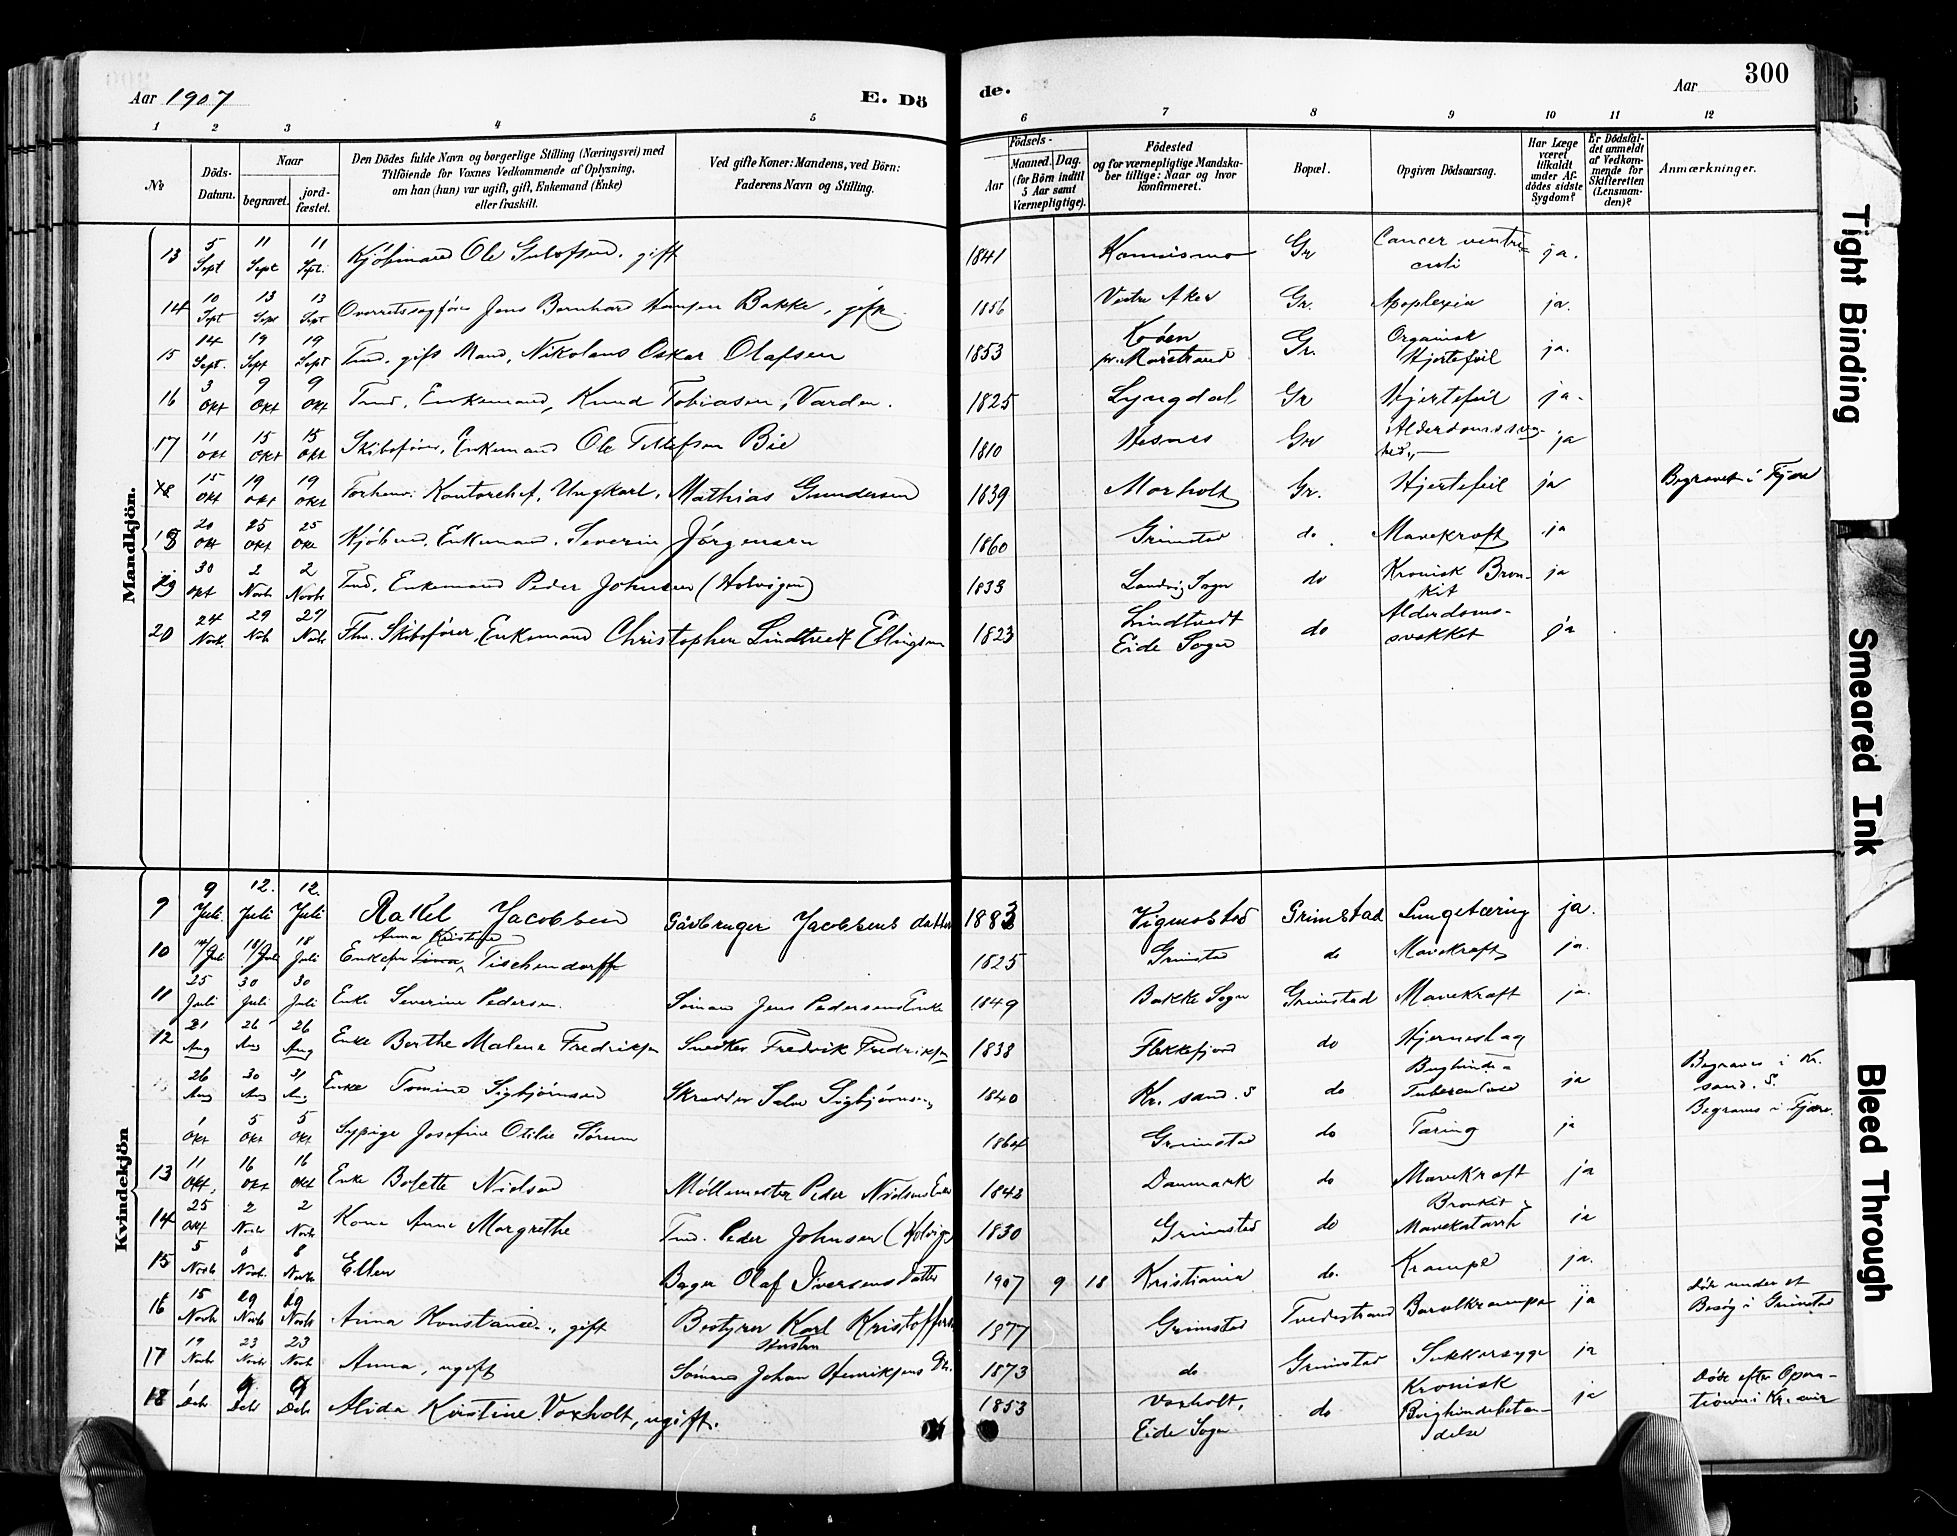 300
Aar 1907
E. Dö
de.
Aar
1 2 3 4 5 6 7 8 9 10 11 12
No
Döds-
Datum.
Naar
begravet.
jord-
fæstet.
Den Dödes fulde Navn og borgerlige Stilling (Næringsvei) med
Tilföiende for Voxnes Vedkommende af Oplysning,
om han (hun) var ugift, gift, Enkemand (Enke)
eller fraskilt.
Ved gifte Koner: Mandens, ved Börn:
Faderens Navn og Stilling.
Födsels-
Aar
Maaned. Dag.
(for Börn indtil
5 Aar samt
Værnepligtige).
Födested
og for værnepligtige Mandska-
ber tillige: Naar og hvor
konfirmeret.
Bopæl.
Opgiven Dödsaarsag.
Har Læge
været
tilkaldt
under Af-
dödes sidste
Sygdom?
Er Dödsfal-
det anmeldt
af Vedkom-
mende for
Skifteretten
(Lensman-
den)?
Anmærkninger.
Mandkjön.
13 5 Sept 11 Sept 11 Sept. Kjöbmand Ole , gift 1841 Gr Cancer ventri-
culi ja.
14 10 Sept 13 Sept 13 Sept Overretssagförer Jens Bernhard Hansen Bakke, gift 1856 Vestre Aker Gr. Apoplexia ja.
15 14 Sept. 19 Sept 19 Sept Tmd. gift Mand, Nikolaus Oskar Olafsen 1853
pr. Marstrand Gr. Organisk
Hjertefeil ja.
16 3 Okt 9 Okt 9 Okt Tmd. Enkemand, Knud Tobiasen, Varden. 1825 Lyngdal Gr Hjertefeil ja.
17 11 Okt 15 Okt 15 Okt Skibsförer, Enkemand Ole Tellefsen Bie 1810 Gr Alderdomssvag-
hed ja
18 15 Okt 19 Okt 19 Okt Forhenv. Kontorchef, Ungkarl, Mathias Gundersen 1839 Morholt Gr. Hjertefeil ja Begravet i Fjære
18 20 Okt 25 Okt 25 Okt Kjöbmd. Enkemand. Severin Jörgensen 1860 Grimstad do Mavekræft ja
19 30 Okt 2 Novb 2 Novb Tmd. Enkemand Peder Johnsen (Holvigen) 1833 Landvig Sogn do Kronisk Bron-
kit ja
20 24 Novb. 29 Novb 29 Novb Fhv. Skibsförer, Enkemand Christopher Lindtvedt Ellingsen 1823 Lindtvedt
Eide Sogn do Alderdoms-
svakket ja
Kvindekjön
9 9 Juli 12. Juli 12. Juli Rakel Jacobsen Gårdbruger Jacobsens datter 1883 Vigmostad Grimstad Lungetæring ja.
Anna Kristofa
10 14/Juli 18/Juli 18 Juli Enkefru Tischendorff 1825 Grimstad do Mavekræft ja.
11 25 Juli 30 Juli 30 Juli Enke Severine Pedersen. Sömand Jens Pedersens Enke 1849 Bakke Sogn Grimstad Mavekræft ja.
12 21 Aug 26 Aug 26 Aug Enke Berthe Malene Fredriksen Snedker Fredrik Fredriksen 1838 Flekkefjord do Hjerneslag
26 Aug 30 Aug 31 Aug Enke Tomine Sigbjörnsen Skrædder Salve Sigbjörnsen 1840 Kr. sand. S do Bughinde-
Tuberculose ja Begraves i Kr.
sand. S.
1 Okt 5 Okt 5 Okt Sypige Josefine Otilie Sörum 1864 Grimstad do Tæring ja Begraves i Fjære.
13 11 Okt. 16 Okt 16 Okt Enke Bolette Nielsen Möllemester Peder Nielsens Enke 1842 Danmark do Mavekræft ja
14 25 Okt 2 Novb 2 Novb Kone Anne Margrethe Tmd. Peder Johnsen (Holvigen 1830 Grimstad do Bronkit &
Mavekatarrh ja
15 5 Novb 8 Novb. 8 Novb Ellen Bager Olaf Iversens datter 1907 9 18 Kristiania do. Krampe ja.
16 15 Novb 19 Novb 19 Novb Anna Konstance, gift Bestyrer Karl Kristoffersen 1877 Grimstad Tvedestrand Barselkrampe ja Döde under et
Besög i Grimstad
17 19 Novb 23 Novb 23 Novb Anna, ugift Sömand Johan Henriksens Dtr. 1873 do Grimstad Sukkersyge ja
18 1 Decbr 9 Decb 9 Decb Alida Kirstine Voxholt, ugift. 1853 Voxholt,
Eide Sogn do Kronisk
Bughindebetæn-
delse ja Döde efter Opera-
tionen i Kr.
Tight Binding
Smeared Ink
Bleed Through